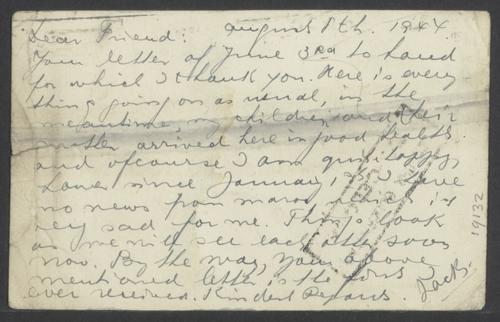 Dear Friend: august 8th. 1944.
Your letter of June 3rd to hand
for which I thank you. Here is every
thing going on as usual, in the
meantime, my children and their
mother arrived here in good health.
and ofcourse I am quit happy,
since January 1st I have
no news from which is
very sad for me. Things look
as we will see each other soon
now. By the way, your above
mentioned letter is the first
ever received. Kindest Regards. Jack.
19132